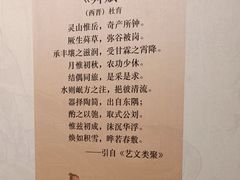 (西晋)杜育
灵山惟岳,奇产所钟。
厥生荈草,弥谷被岗。
承丰壤之滋润,受甘霖之霄降。
月惟初秋,农功少休。
结偶同旅,是采是求。
水则岷方之注,挹彼清流。
器择陶简,出自东隅;
酌之以匏,取式公刘。
惟兹初成,沫沉华浮。
焕如积雪,晔若春敷。
——引自《艺文类聚》